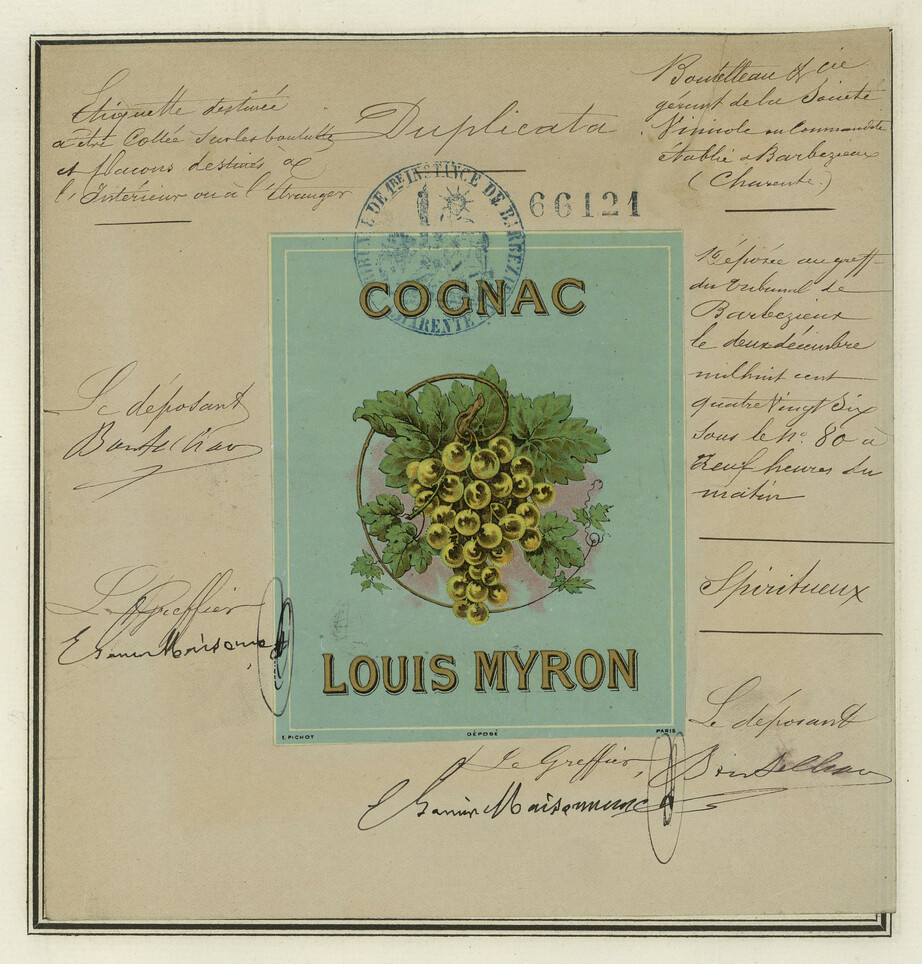 Etiquette destinée
à être Collée sur les bouteilles
et flacons destinés à
l'Intérieur ou à l'Etranger
Duplicata
Boutelleau & Cie
gérant de la Société
Vinicole en Commandite
établie à Barbezieux
(Charente.)
TRIBUNAL DE 1RE INSTANCE DE BARBEZIEUX
CHARENTE
66121
COGNAC
LOUIS MYRON
E. PICHOT
DÉPOSÉ
PARIS
Déposée au greffe
du tribunal de
Barbezieux
le deux décembre
mil huit cent
quatre Vingt Six
sous le No. 80 à
Neuf heures du
matin
Spiritueux
Le déposant
Boutelleau
Le Greffier
Maisonneuve
Le déposant
Boutelleau
Le Greffier,
Maisonneuve